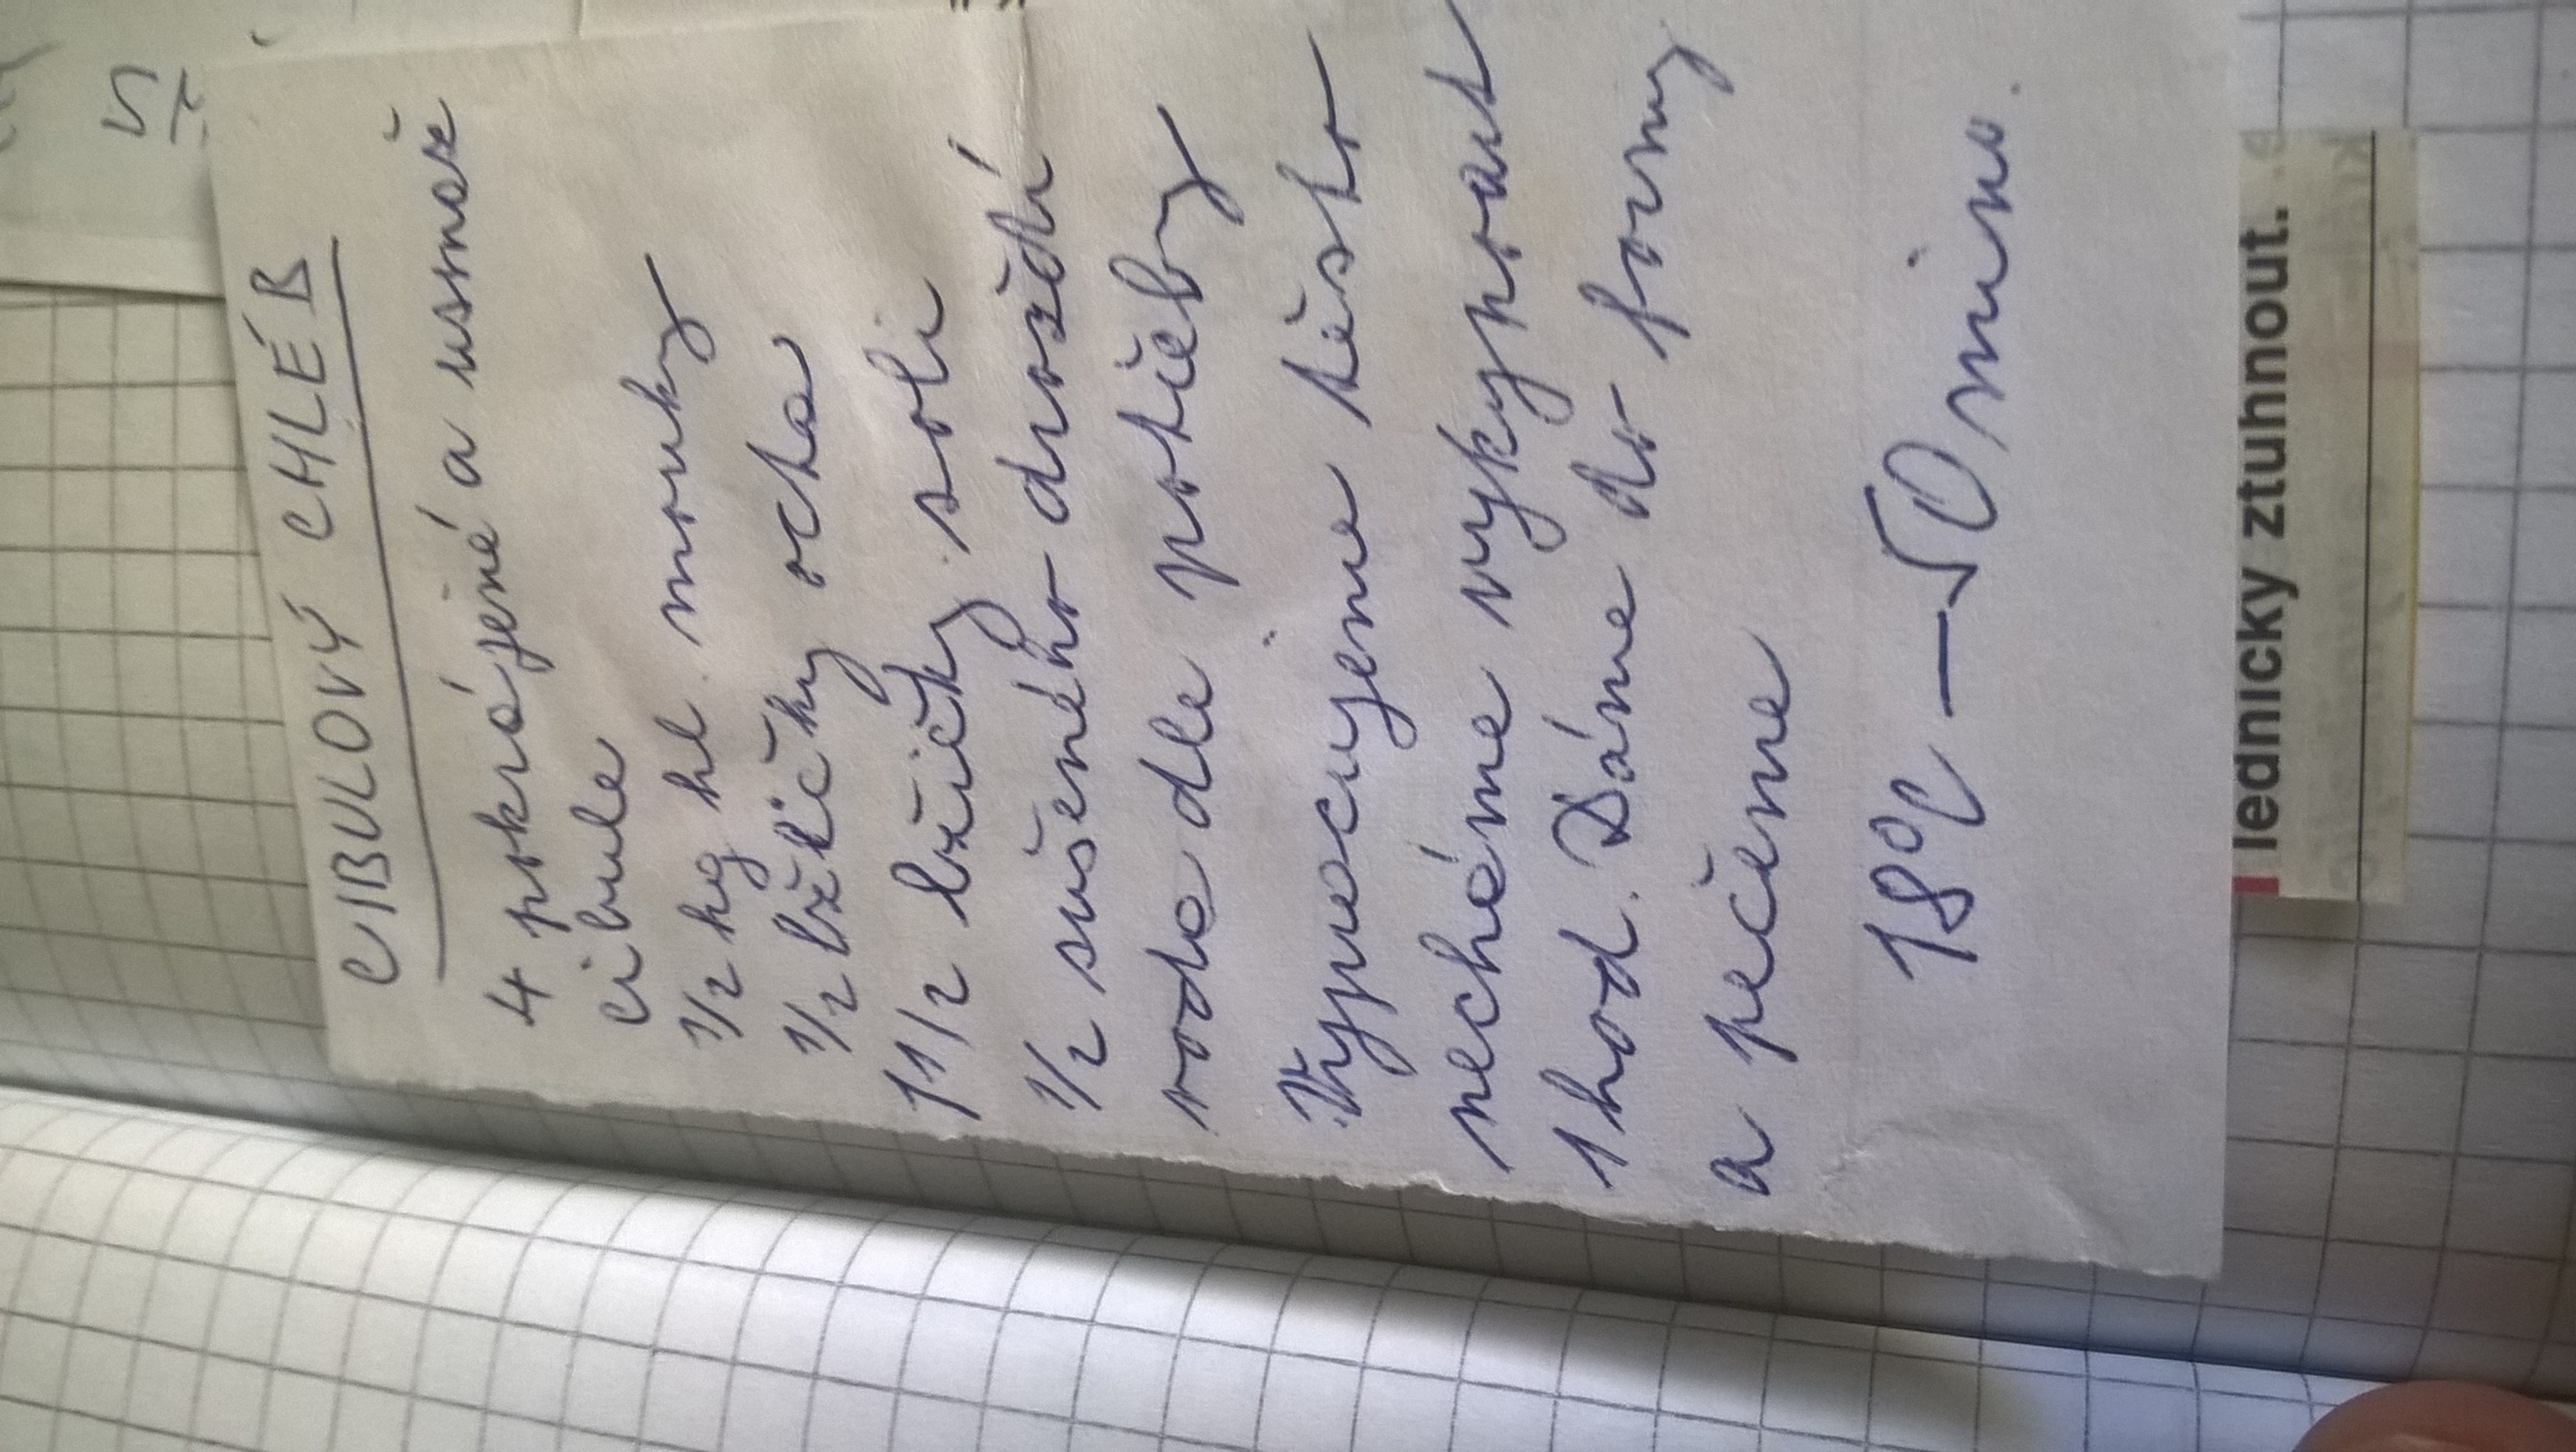 CIBULOVÝ CHLÉB
4 pokrájené a usmaže
cibule
1/2 kg hl. mouky
1/2 lžičky octa
1 1/2 lžičky soli
1/2 sušeného droždí
voda dle potřeby
Vypracujeme těsto
necháme vykynout
1 hod. Dáme do formy
a pečeme
18°C — 50 minu.
lednicky ztuhnout.